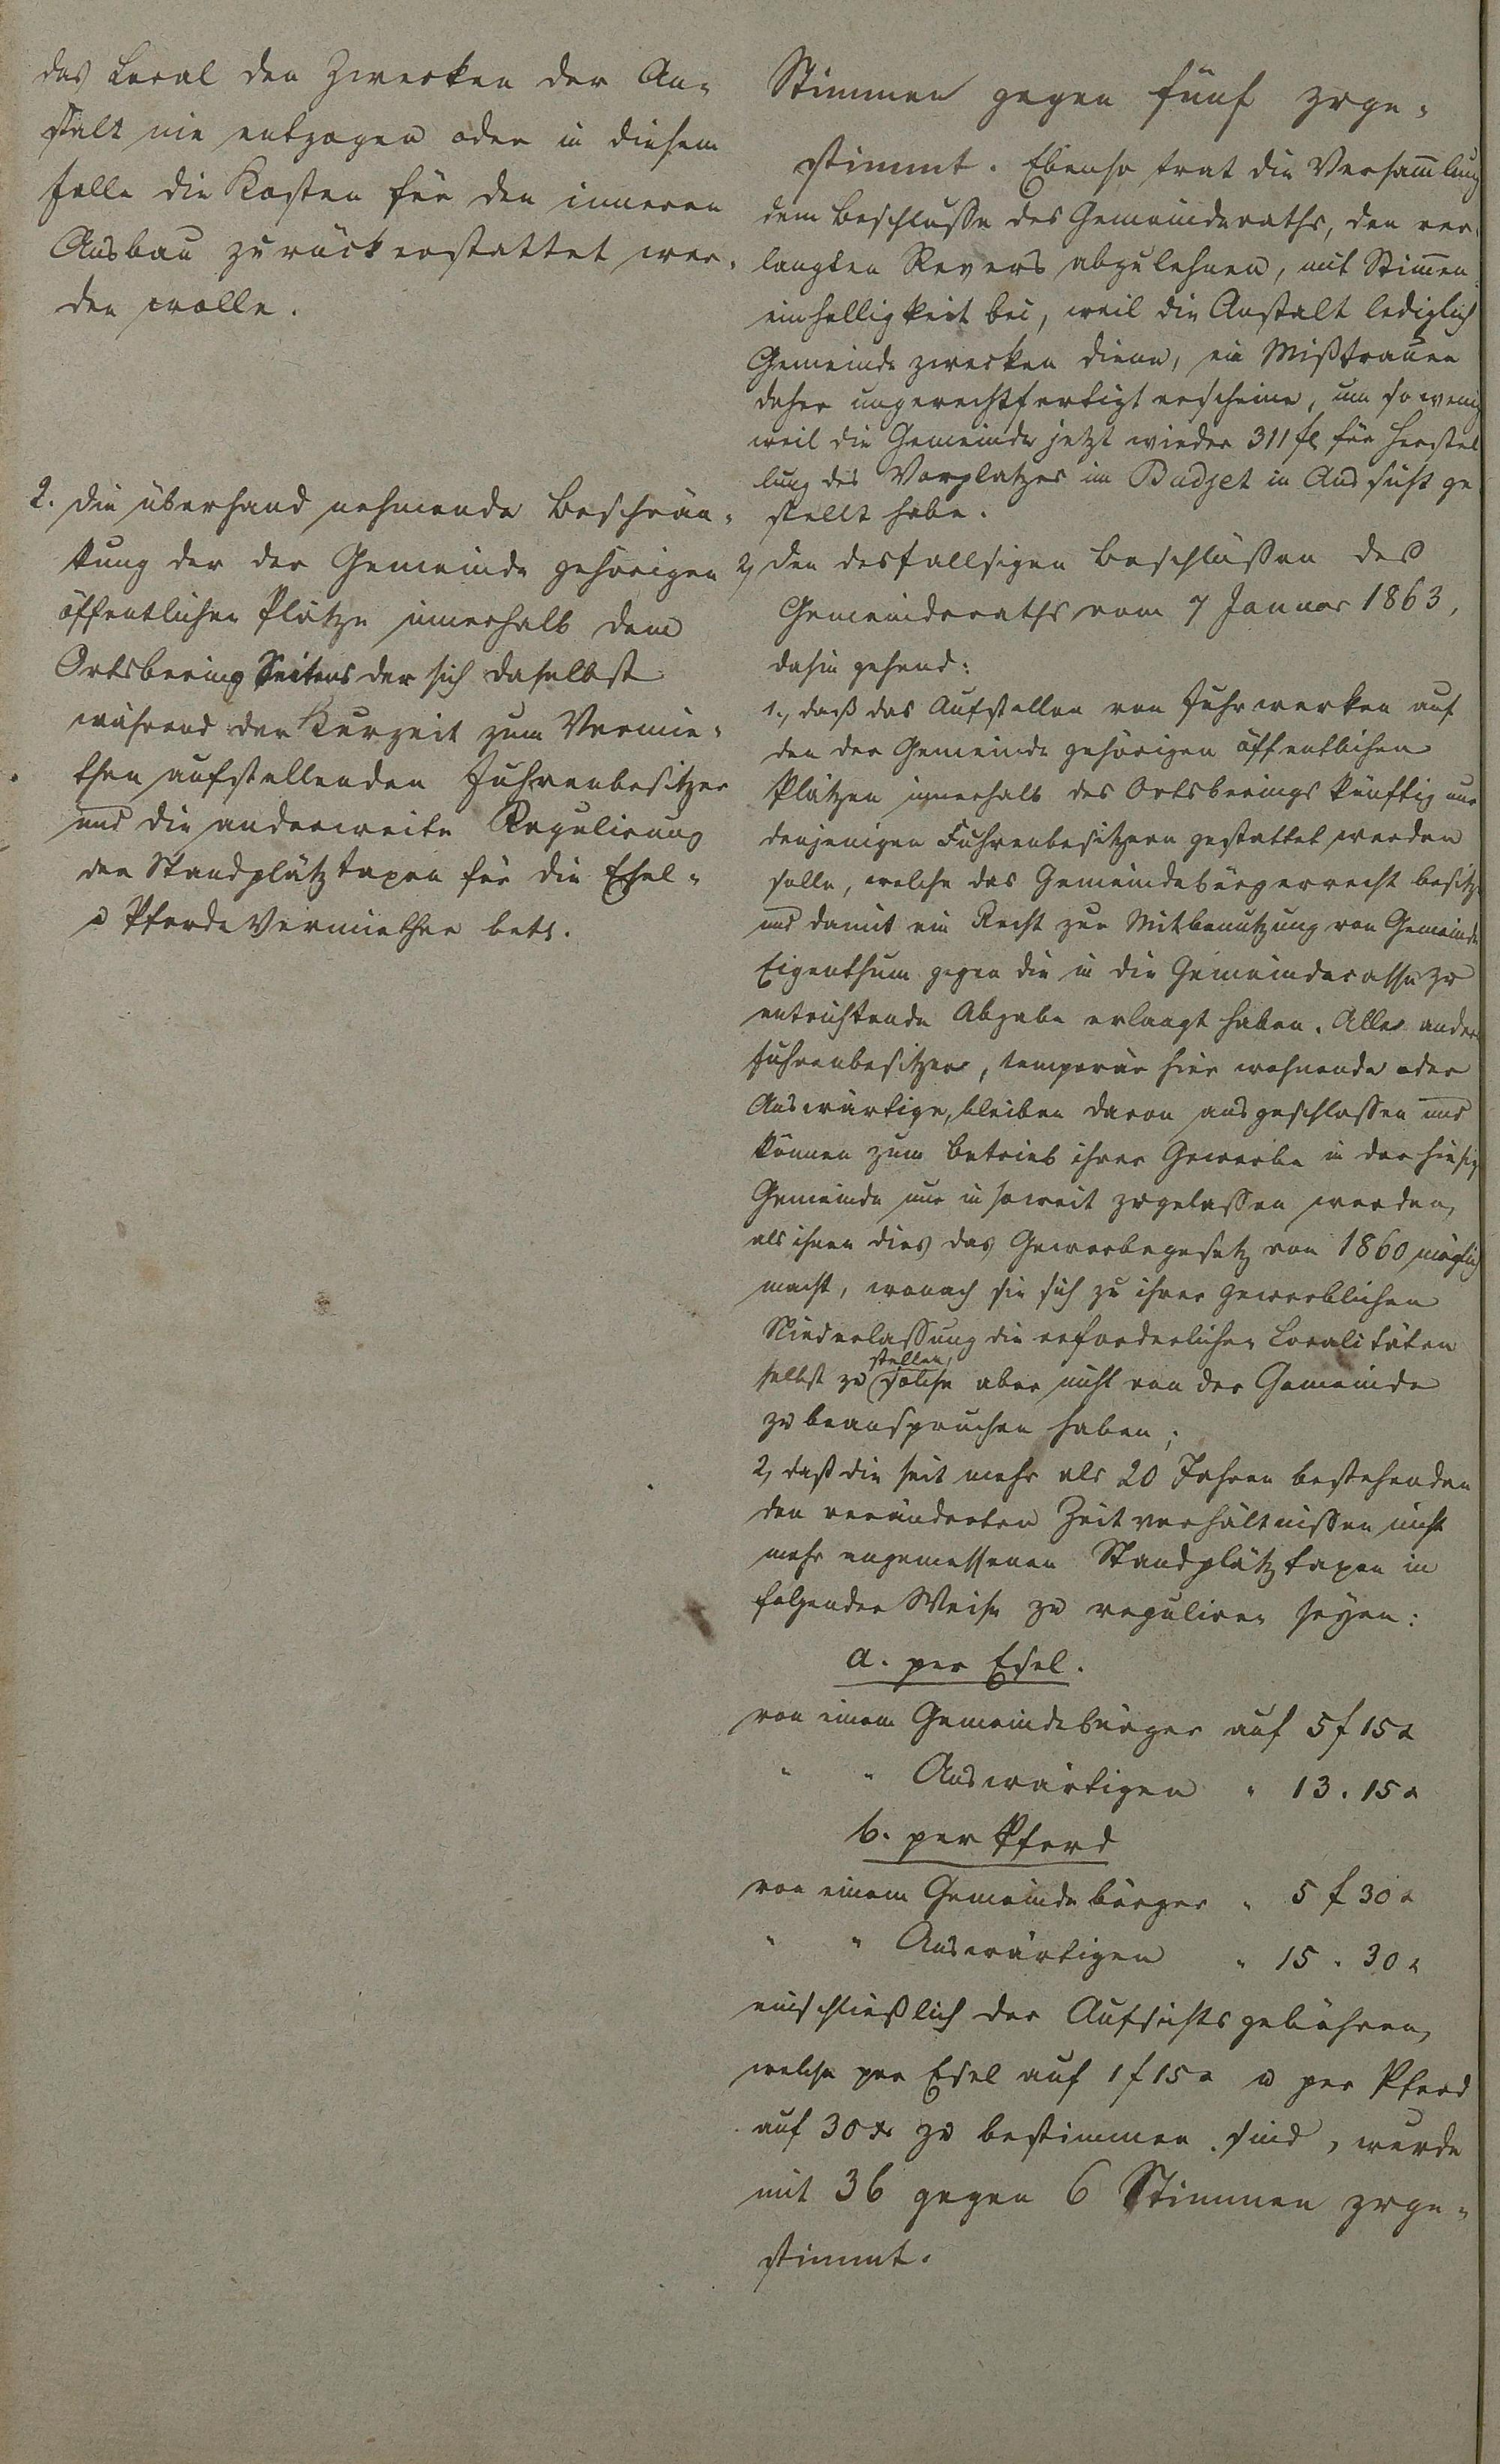 das Local den Zwecken der An-
stalt nie entzogen oder in diesem
Falle die Kosten für den inneren
Ausbau zurückerstattet wer-
den wolle.
2. die überhand nehmende Beschrän-
kung der der Gemeinde gehörigen
öffentlichen Plätze innerhalb dem
Ortsbering Seitens der sich daselbst
während der Kurzeit zum Vermie-
then aufstellenden Fuhrenbesitzer
und die anderweite Regulirung
der Standplätztaxen für die Esel-
u Pferde Vermiether betr.
Stimmen gegen fünf zuge-
stimmt. Ebenso trat die Versam̄lung
dem Beschluße des Gemeinderaths, den ver-
langten Revers abzulehnen, mit Stim̄en
einhelligkeit bei, weil die Anstalt lediglich
Gemeinde zwecken diene, ein Mißtrauen
daher ungerechtfertigt erscheine, um so wenig
weil die Gemeinde jetzt wieder 311 fl für Herstel
lung des Vorplatzes im Budget in Aussicht ge
stellt habe.
2, den desfallsigen Beschlüßen des
Gemeinderaths vom 7 Januar 1863,
dahin gehend:
1., daß das Aufstellen von Fuhrwerken auf
den der Gemeinde gehörigen öffentlichen
Plätzen innerhalb des Ortsberings künftig nur
denjenigen Fuhrenbesitzern gestattet werden
solle, welche das Gemeindebürgerrecht besitze
und damit ein Recht zur Mitbenutzung von Gemeinde
Eigenthum gegen die in die Gemeindecasse zu
entrichtende Abgabe erlangt haben. Alle andere
Fuhrenbesitzer, temporär hier wohnende oder
Auswärtige, bleiben davon ausgeschlossen und
können zum Betrieb ihrer Gewerbe in der hiesig
Gemeinde nur in soweit zugelaßen werden,
als ihnen dies das Gewerbegesetz von 1860 möglich
macht, wonach sie sich zu ihrer gewerblichen
Niederlaßung die erforderlichen Localitäten
selbst zu stellen, solche aber nicht von der Gemeinde
zu beanspruchen haben;
2, daß die seit mehr als 20 Jahren bestehenden
den veränderten Zeitverhältnißen nicht
mehr angemessenen Standplätztaxen in
folgender Weise zu reguliren seyen:
a. per Esel.
von einem Gemeindebürger auf 5 f 15 x
" " Auswärtigen " 13. 15 x
b. per Pferd
von einem Gemeindebürger " 5 f 30 x
" " Auswärtigen " 15. 30 x
einschließlich der Aufsichtsgebühren,
welche per Esel auf 1 f 15 x u per Pferd
auf 30 xr zu bestimmen sind, wurde
mit 36 gegen 6 Stimmen zuge-
stimmt.